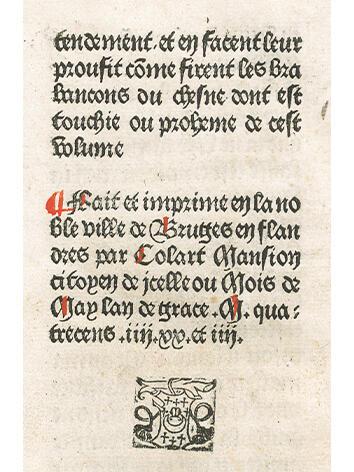 tendement. et en facent leur
proufit cõme firent les bra
bancons du chesne dont est
touchie ou proheme de cest
volume
¶ Fait et imprime en la no
ble ville de Bruges en flan
dres par Colart Mansion
citoyen de icelle ou Mois de
May lan de grace. M. qua-
trecens .iiij.xx. et iiij.